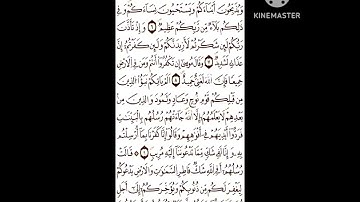 KINEMASTER
وَيُذَبِّحُونَ أَبْنَاءَكُمْ وَيَسْتَحْيُونَ نِسَاءَكُمْ وَفِي
ذَٰلِكُم بَلَاءٌ مِّن رَّبِّكُمْ عَظِيمٌ ٦ وَإِذْ تَأَذَّنَ
رَبُّكُمْ لَئِن شَكَرْتُمْ لَأَزِيدَنَّكُمْ وَلَئِن كَفَرْتُمْ إِنَّ
عَذَابِي لَشَدِيدٌ ٧ وَقَالَ مُوسَىٰ إِن تَكْفُرُوا أَنتُمْ وَمَن فِي الْأَرْضِ
جَمِيعًا فَإِنَّ اللَّهَ لَغَنِيٌّ حَمِيدٌ ٨ أَلَمْ يَأْتِكُمْ نَبَؤُا الَّذِينَ
مِن قَبْلِكُمْ قَوْمِ نُوحٍ وَعَادٍ وَثَمُودَ وَالَّذِينَ مِن
بَعْدِهِمْ لَا يَعْلَمُهُمْ إِلَّا اللَّهُ جَاءَتْهُمْ رُسُلُهُم بِالْبَيِّنَاتِ
فَرَدُّوا أَيْدِيَهُمْ فِي أَفْوَاهِهِمْ وَقَالُوا إِنَّا كَفَرْنَا بِمَا أُرْسِلْتُم
بِهِ وَإِنَّا لَفِي شَكٍّ مِّمَّا تَدْعُونَنَا إِلَيْهِ مُرِيبٍ ٩ قَالَتْ
رُسُلُهُمْ أَفِي اللَّهِ شَكٌّ فَاطِرِ السَّمَاوَاتِ وَالْأَرْضِ يَدْعُوكُمْ
لِيَغْفِرَ لَكُم مِّن ذُنُوبِكُمْ وَيُؤَخِّرَكُمْ إِلَىٰ أَجَلٍ